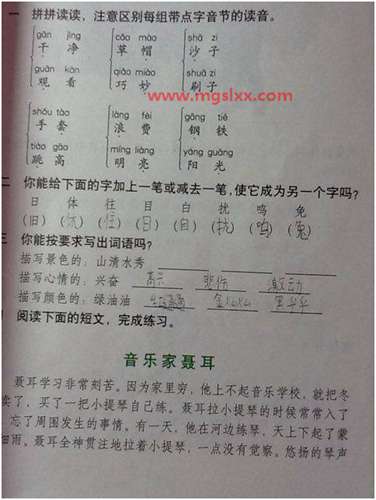 一 拼拼读读，注意区别每组带点字音节的读音。
gān jìng cǎo mào shā zi
干 净 草 帽 沙 子
guān kàn qiǎo miào shuā zi
观 看 巧 妙 刷 子
www.mgslxx.com
shǒu tào làng fèi gāng tiě
手 套 浪 费 钢 铁
tiào gāo míng liàng yáng guāng
跳 高 明 亮 阳 光
二 你能给下面的字加上一笔或减去一笔，使它成为另一个字吗？
日 体 往 目 白 扰 鸣 免
(旧) ( ) (住) (日) (自) (拢) (鸣) (兔)
三 你能按要求写出词语吗？
描写景色的：山清水秀
描写心情的：兴奋 高兴 悲伤 激动
描写颜色的：绿油油 金灿灿
阅读下面的短文，完成练习。
音乐家聂耳
聂耳学习非常刻苦。因为家里穷，他上不起音乐学校，就把冬
卖了，买了一把小提琴自己练。聂耳拉小提琴的时候常常入了
忘了周围发生的事情。有一天，他在河边练琴，天上下起了蒙
细雨。聂耳全神贯注地拉着小提琴，一点没有觉察。悠扬的琴声